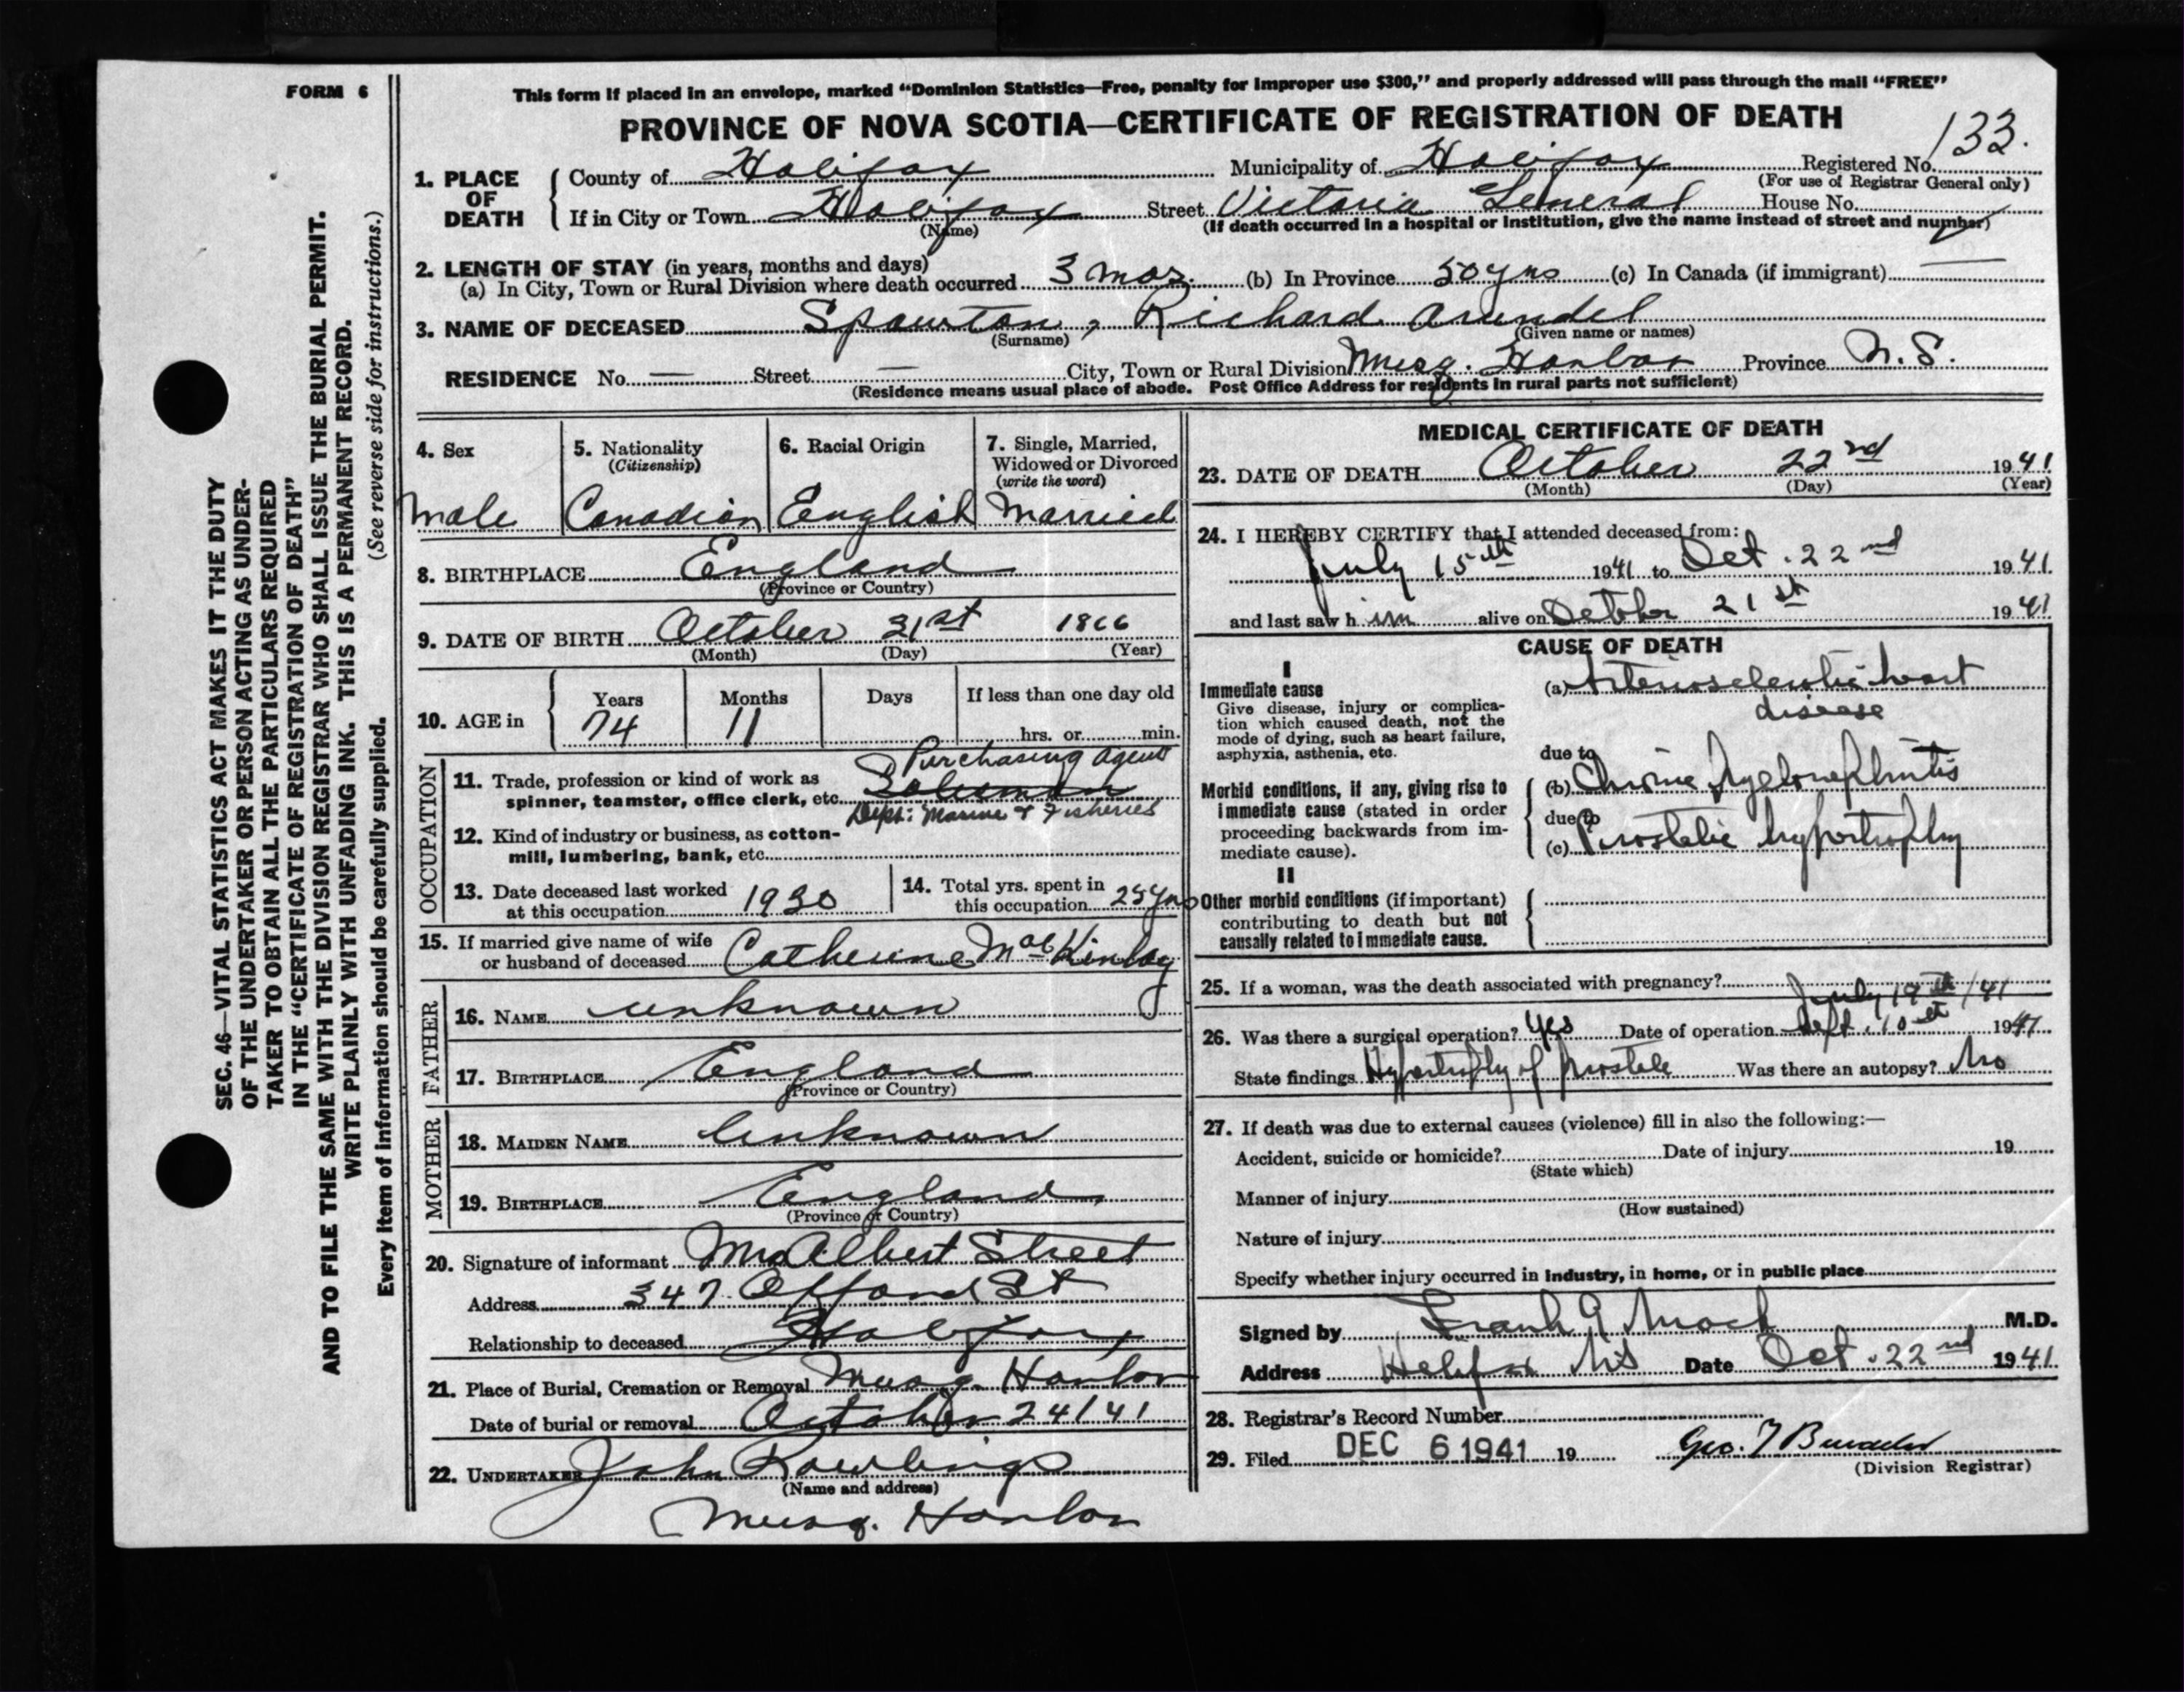 FORM 6
This form if placed in an envelope, marked “Dominion Statistics—Free, penalty for improper use $300,” and properly addressed will pass through the mail “FREE”
PROVINCE OF NOVA SCOTIA—CERTIFICATE OF REGISTRATION OF DEATH
133.
1. PLACE OF DEATH
County of Halifax Municipality of Halifax Registered No.
(For use of Registrar General only)
If in City or Town Halifax Street Victoria General House No.
(Name) (If death occurred in a hospital or institution, give the name instead of street and number)
2. LENGTH OF STAY (in years, months and days)
(a) In City, Town or Rural Division where death occurred 3 mos. (b) In Province 50 yrs (c) In Canada (if immigrant) —
3. NAME OF DECEASED Spawton, Richard Arundel
(Surname) (Given name or names)
RESIDENCE No. — Street — City, Town or Rural Division Musq. Harbor Province N.S.
(Residence means usual place of abode. Post Office Address for residents in rural parts not sufficient)
4. Sex
Male
5. Nationality
(Citizenship)
Canadian
6. Racial Origin
English
7. Single, Married,
Widowed or Divorced
(write the word)
Married
8. BIRTHPLACE England
(Province or Country)
9. DATE OF BIRTH October 31st 1866
(Month) (Day) (Year)
10. AGE in
Years Months Days If less than one day old
74 11 hrs. or min.
OCCUPATION
Purchasing agent
11. Trade, profession or kind of work as
spinner, teamster, office clerk, etc. Salesman
Dept: Marine & Fisheries
12. Kind of industry or business, as cotton-
mill, lumbering, bank, etc.
13. Date deceased last worked
at this occupation 1930
14. Total yrs. spent in
this occupation 25 yrs
15. If married give name of wife
or husband of deceased Catherine MacKinlay
FATHER
16. NAME unknown
17. BIRTHPLACE England
(Province or Country)
MOTHER
18. MAIDEN NAME Unknown
19. BIRTHPLACE England
(Province or Country)
20. Signature of informant Mrs Albert Street
Address 347 Offord St
Relationship to deceased Halifax
21. Place of Burial, Cremation or Removal Musq. Harbor
Date of burial or removal October 24/41
22. UNDERTAKER John Rowlings
(Name and address)
Musq. Harbor
MEDICAL CERTIFICATE OF DEATH
23. DATE OF DEATH October 22nd 1941
(Month) (Day) (Year)
24. I HEREBY CERTIFY that I attended deceased from:
July 15th 1941 to Oct. 22nd 1941
and last saw him alive on October 21st 1941
CAUSE OF DEATH
I
Immediate cause
Give disease, injury or complica-
tion which caused death, not the
mode of dying, such as heart failure,
asphyxia, asthenia, etc.
(a) Arteriosclerotic heart
disease
due to
Morbid conditions, if any, giving rise to
immediate cause (stated in order
proceeding backwards from im-
mediate cause).
(b) Chronic Pyelonephritis
due to
(c) Prostatic hypertrophy
II
Other morbid conditions (if important)
contributing to death but not
causally related to immediate cause.
25. If a woman, was the death associated with pregnancy?
July 19th/41
26. Was there a surgical operation? Yes Date of operation Sept. 10th 1941
State findings Hypertrophy of prostate Was there an autopsy? No
27. If death was due to external causes (violence) fill in also the following:—
Accident, suicide or homicide? Date of injury 19
(State which)
Manner of injury
(How sustained)
Nature of injury
Specify whether injury occurred in industry, in home, or in public place
Signed by Frank G Mack M.D.
Address Halifax NS Date Oct. 22nd 1941
28. Registrar's Record Number
29. Filed DEC 6 1941 19 Geo. T
(Division Registrar)
SEC. 46—VITAL STATISTICS ACT MAKES IT THE DUTY
OF THE UNDERTAKER OR PERSON ACTING AS UNDER-
TAKER TO OBTAIN ALL THE PARTICULARS REQUIRED
IN THE “CERTIFICATE OF REGISTRATION OF DEATH”
AND TO FILE THE SAME WITH THE DIVISION REGISTRAR WHO SHALL ISSUE THE BURIAL PERMIT.
WRITE PLAINLY WITH UNFADING INK. THIS IS A PERMANENT RECORD.
(See reverse side for instructions.)
Every item of information should be carefully supplied.